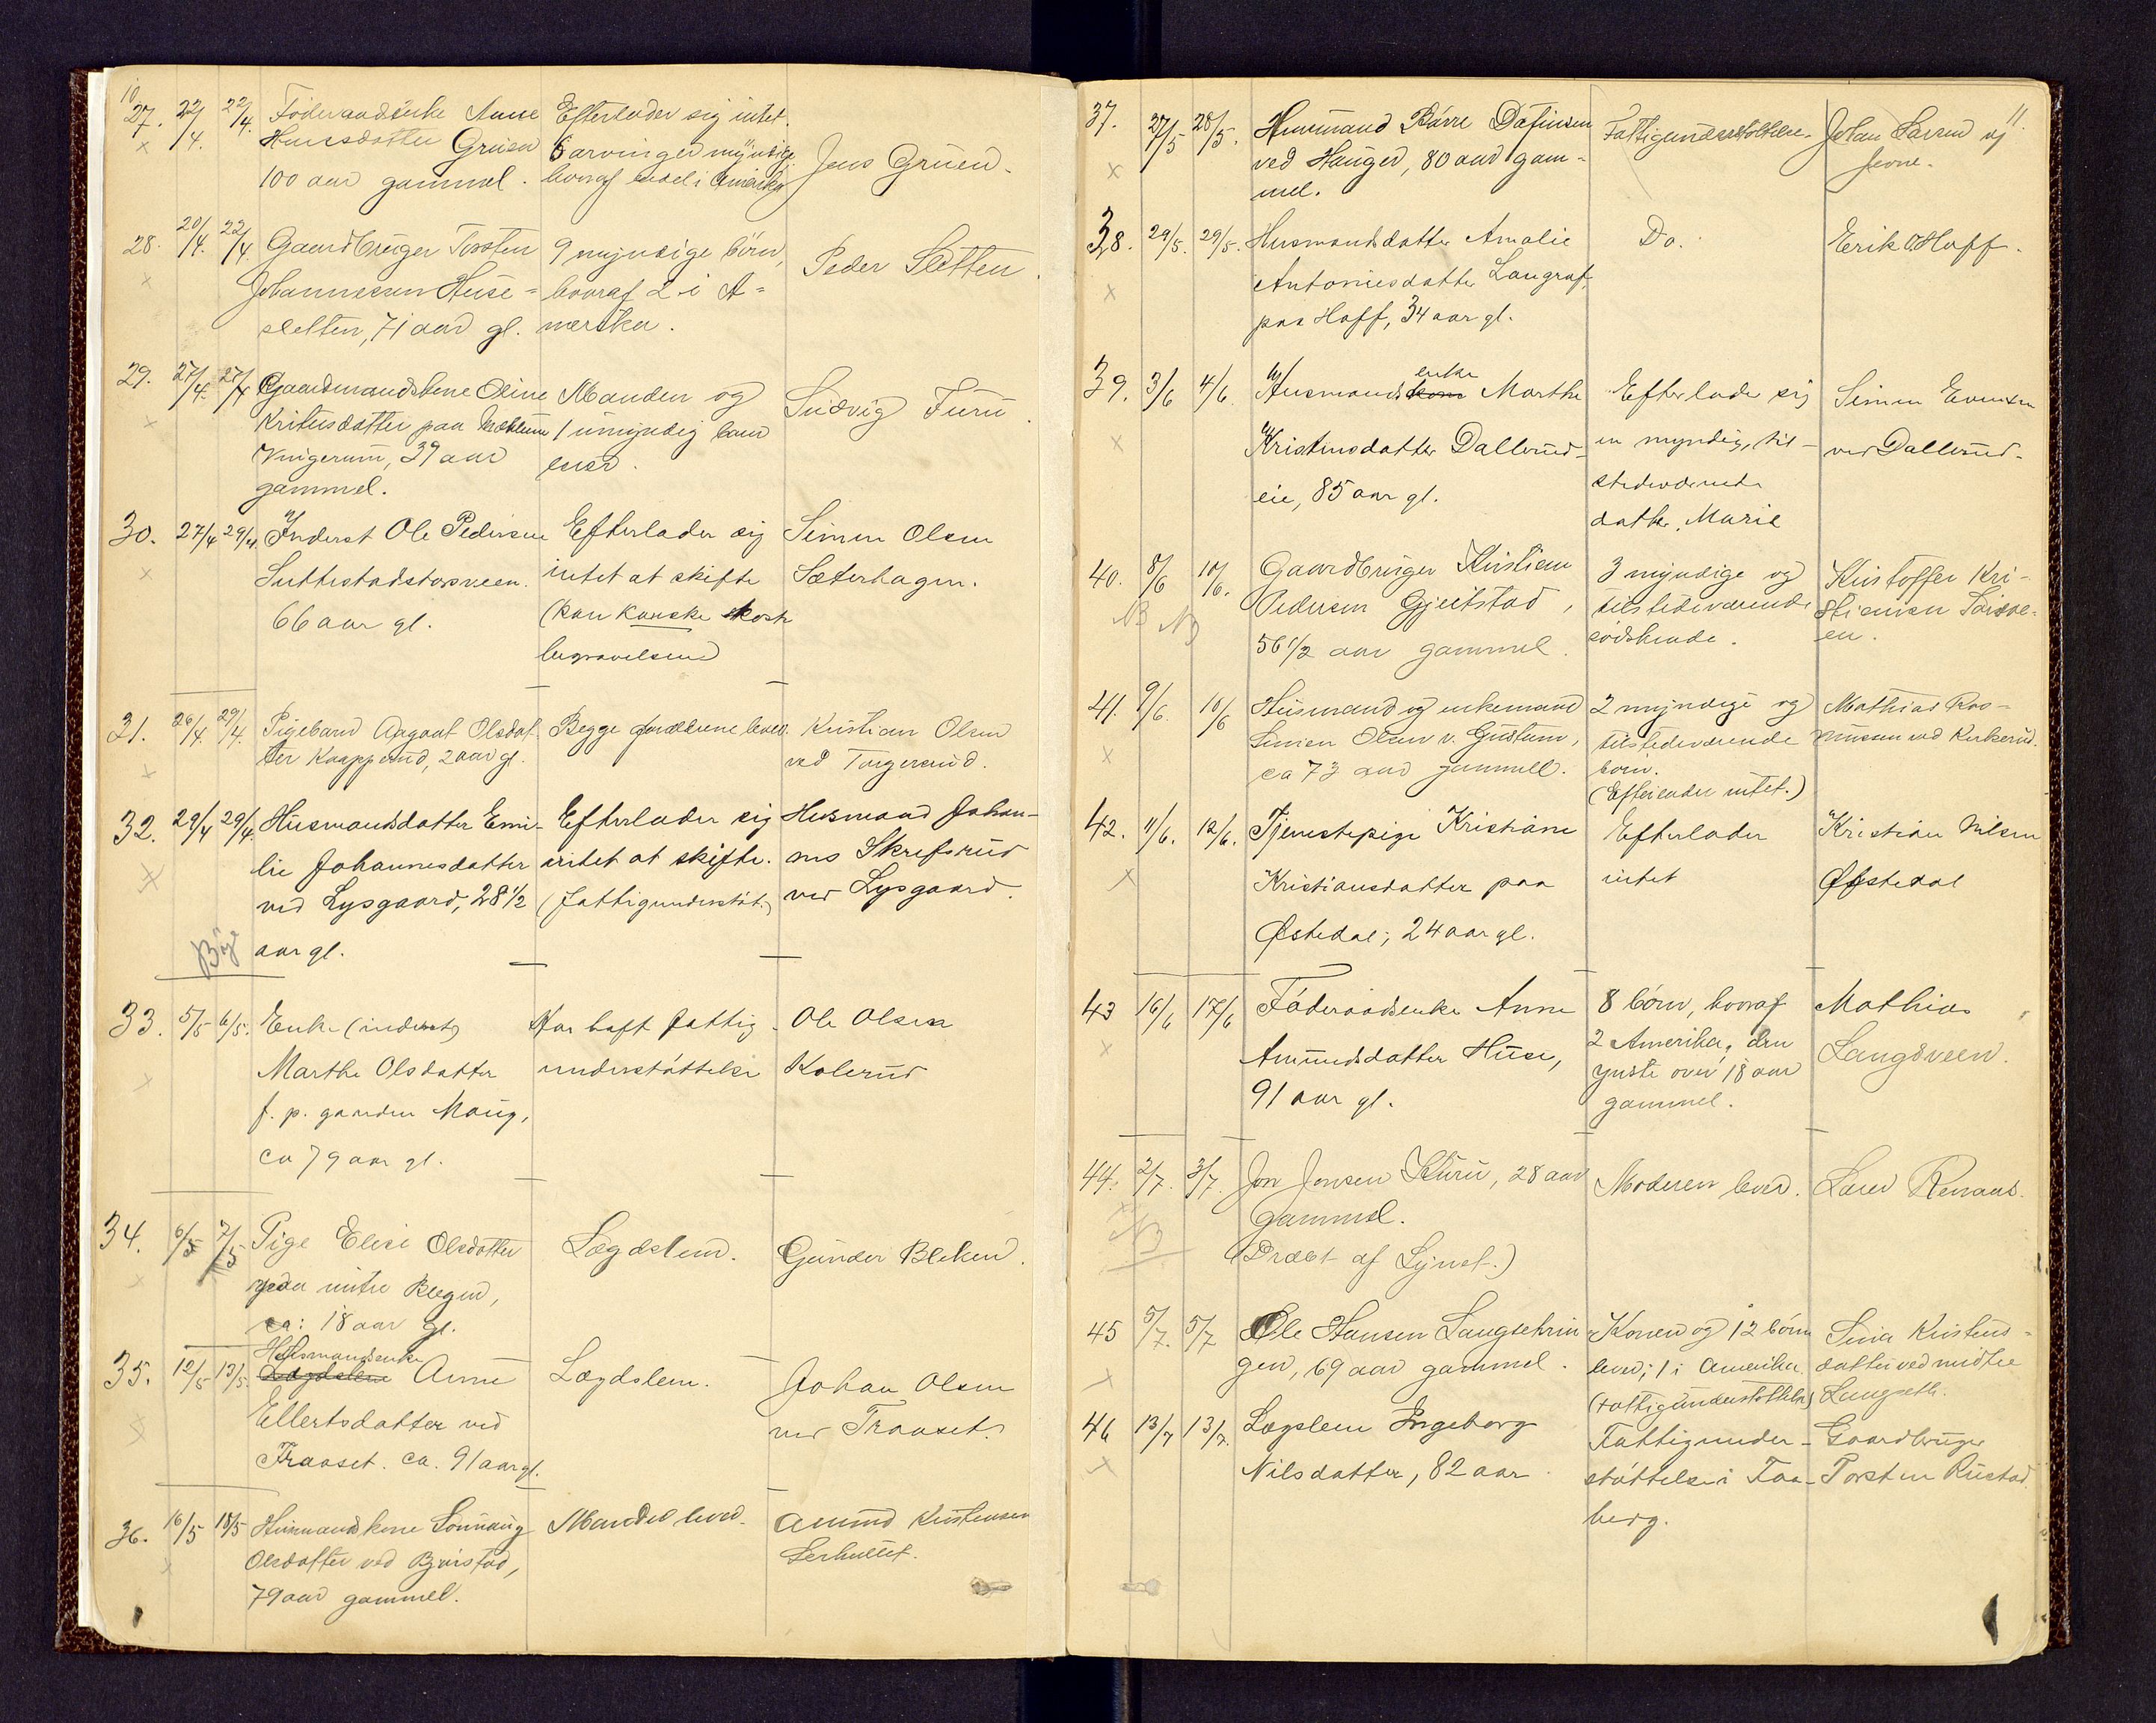 10
27. 22/4. 22/4. Föderaadsenke Anne Efterlader sig intet.
Hansdatter Gruen 6 arvinger myndige Jens Gruen.
100 aar gammel. hvoraf endel i Amerika
28. 20/4. 22/4. Gaardbruger Torsten 9 myndige börn, Peder Sletten.
Johannesen Huse- hvoraf 2 i A-
sletten, 71 aar gl. merika.
29. 27/4. 27/4 Gaardmandskone Oline Manden og Ludvig Furu
datter paa 1 umyndig barn
39 aar lever.
gammel.
30. 27/4 29/4 Inderst Ole Pedersen Efterlader sig Simen Olsen
Suttestadstosveen. intet at skifte Sæterhagen.
66 aar gl. (kan kanske koste
begravelsen)
31. 26/4. 29/4. Pigebarn Agaat Olsdat- Begge forældrene lever. Kristian Olsen
ter Kaapperud, 2 aar gl. ved Torgerud.
32. 29/4 29/4. Husmandsdatter Emi- Efterlader sig Husmand Johan-
lie Johannesdatter intet at skifte. nes Skrefsrud
ved Lysgaard, 28 1/2 (fattigunderstöt.) ved Lysgaard.
aar gl.
33. 5/5 6/5. Enke (inderst) Har haft fattig- Ole Olsen
Marthe Olsdatter understöttelse Kolerud
f. p. gaarden Maug,
ca 79 aar gl.
34. 6/5 7/5 Pige Elise Olsdatter Lægdslem. Gunder Bleken.
paa
ca: 18 aar gl.
Husmandsenke
35. 12/5 13/5. Lægdslem Anne Lægdslem. Johan Olsen
Ellertsdatter ved ved Traaset.
Traaset. ca. 91 aar gl.
36. 16/5 18/5 Husmandskone Lonnaug Manden lever. Amund Kristensen
Olsdatter ved Bjørstad,
79 aar gammel.
11.
37. 27/5 28/5. Husmand Börre Dafinsen Fattigunderstöttelse. Johan Larsen
ved Hauger, 80 aar gam- Jevne.
mel.
38. 29/5. 29/5. Husmandsdatter Amalie Do. Erik O Hoff.
Antoniesdatter Langraf
paa Hoff, 34 aar gl.
enke
39. 3/6 4/6. Husmandskone Marthe Efterlader sig Simen Evensen
Kristensdatter Dallerud- en myndig, til- ved Dallerud.
eie, 85 aar gl. stedeværende
datter, Marie
40. 8/6 10/6. Gaardbruger Kristian 3 myndige og Kristoffer Kri-
NB NB Pedersen Gjeitstad, tilstedeværende stiansen
56 1/2 aar gammel. södskende. en.
41. 9/6. 10/6 Husmand og enkemand 2 myndige og Mathias Ras-
Simen Olsen v. Gustum, tilstedeværende mussen ved Kirkerud.
ca 73 aar gammell. börn.
(Efterlader intet.)
42. 11/6. 12/6. Tjenestepige Kristiane Efterlader Kristian Nilsen
Kristiansdatter paa intet Østedal
Østedal; 24 aar gl.
43 16/6 17/6 Föderaadsenke Anne 8 börn, hvoraf Mathias
Amundsdatter Huse, 2 Amerika, den Langsveen.
91 aar gl. ynste over 18 aar
gammel.
44. 2/7. 3/7. Jon Jonsen Kuru, 28 aar Moderen lever. Lars
NB gammel.
(Dræbt af Lynet.)
45 5/7. 5/7 Ole Hansen Langsethrin- Konen og 12 börn Lina Kristens-
gen, 69 aar gammel. lever; 1 i Amerika datter ved midtre
(Fattigunderstöttelse) Langseth.
46 13/7 13/7. Lægslem Ingeborg Fattigunder- Gaardbruger
Nilsdatter, 82 aar. stöttelse i Faa- Torsten Rustad.
berg.